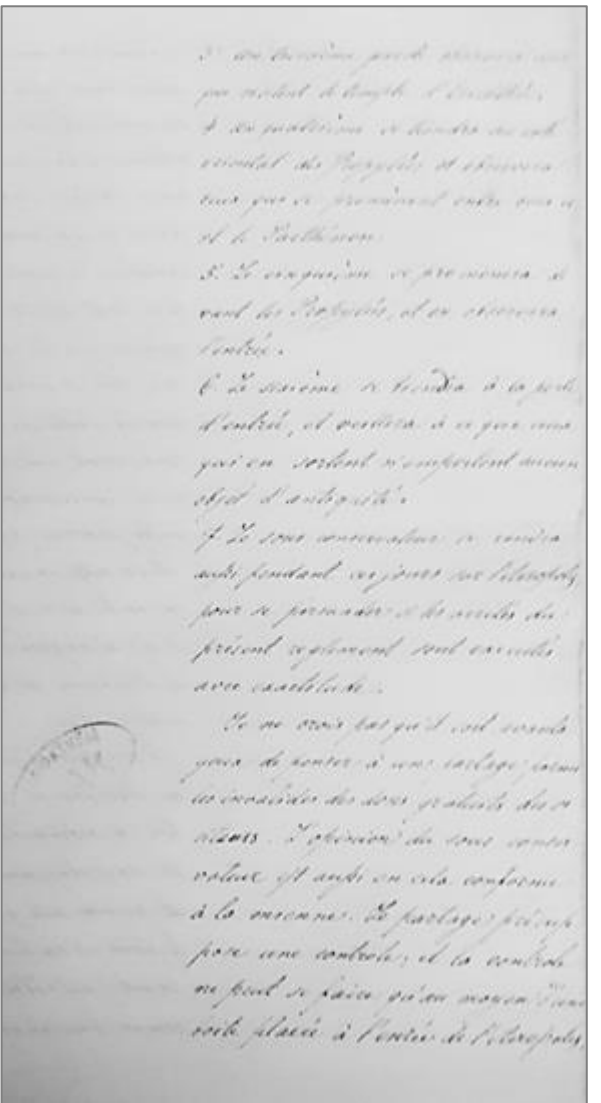 3. Un troisième garde
qui visitent le temple d'Erecthée.
4. Un quatrième se tiendra au côté
oriental des Propylées et observera
ceux qui se promènent entre
et le Parthénon.
5. Le cinquième se promenera de
vant les Propylées, et en observera
l'entrée.
6. Le sixième se tiendra à la porte
d'entrée, et veillera à ce que ceux
qui en sortent n'emportent aucun
objet d'antiquité.
7. Le sous conservateur se rendra
aussi pendant ces jours sur l'Acropolis,
pour se persuader si les articles du
présent reglement sont executés
avec exactitude.
Je ne crois pas qu'il soit avanta
geux de penser à un partage parmi
les invalides des dons gratuits des vi
siteurs. L'opinion du sous conser
vateur est aussi en cela conforme
à la mienne. Le partage présup
pose une controle, et la controle
ne peut se faire qu'au moyen d'une
boite placée à l'entrée de l'Acropolis,